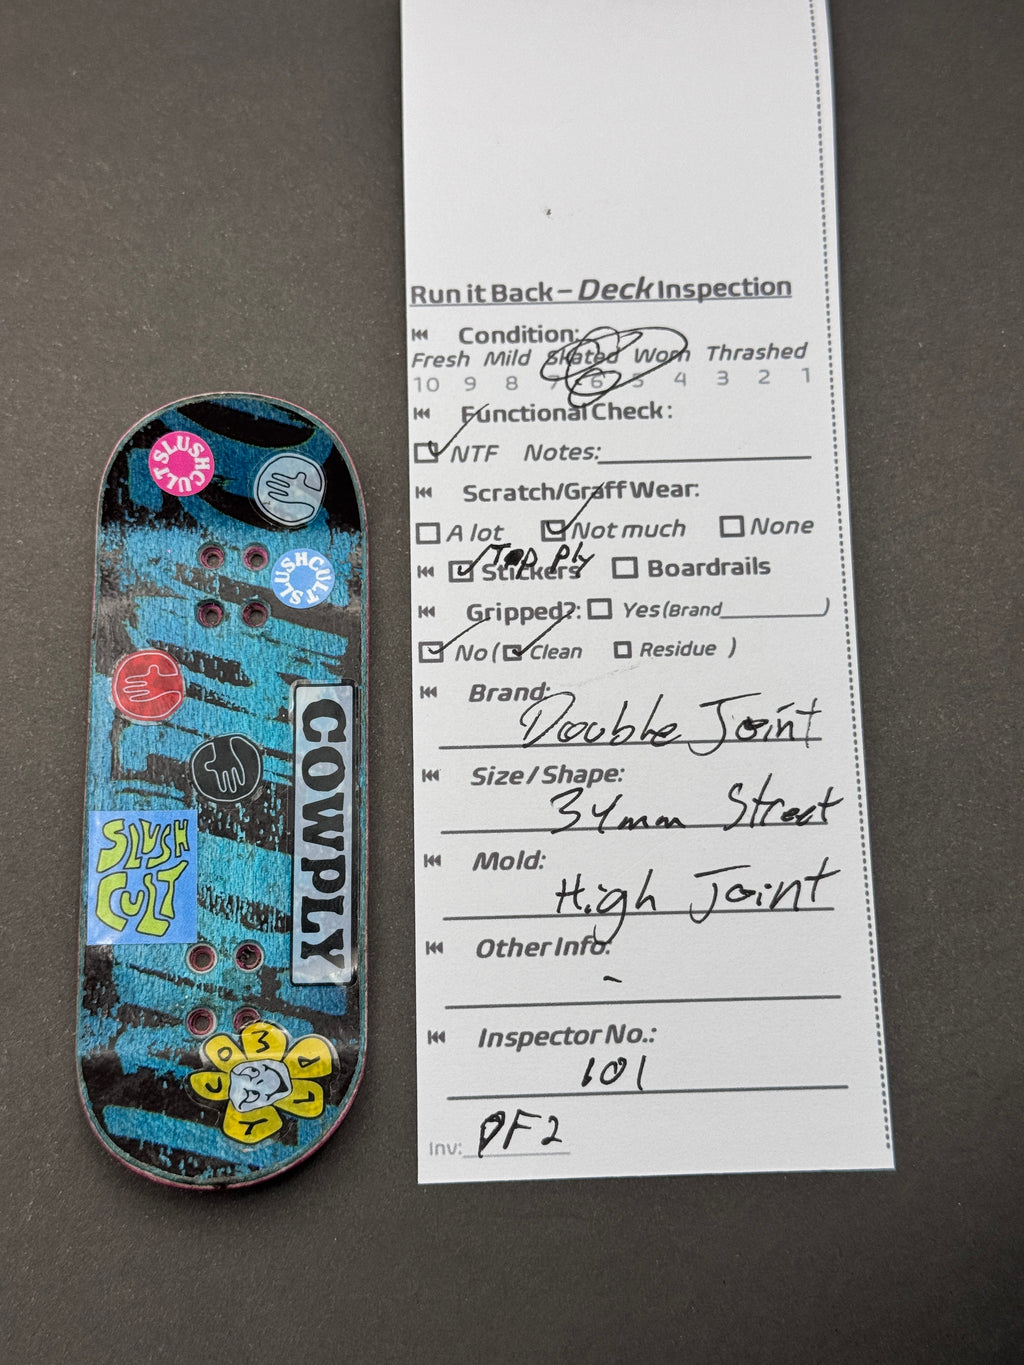 Run it Back – Deck Inspection
Condition:
Fresh Mild Skated Worn Thrashed
10 9 8 7 6 5 4 3 2 1
Functional Check:
NTF Notes:
Scratch/Graff Wear:
A lot Not much None
Top Ply
Stickers Boardrails
Gripped?: Yes (Brand )
No ( Clean Residue )
Brand:
Double Joint
Size / Shape:
34mm Street
Mold:
High Joint
Other Info:
-
Inspector No.:
101
Inv: DF2
SLUSHCULT
SLUSHCULT
COWPLY
SLUSH
CULT
COWPLY